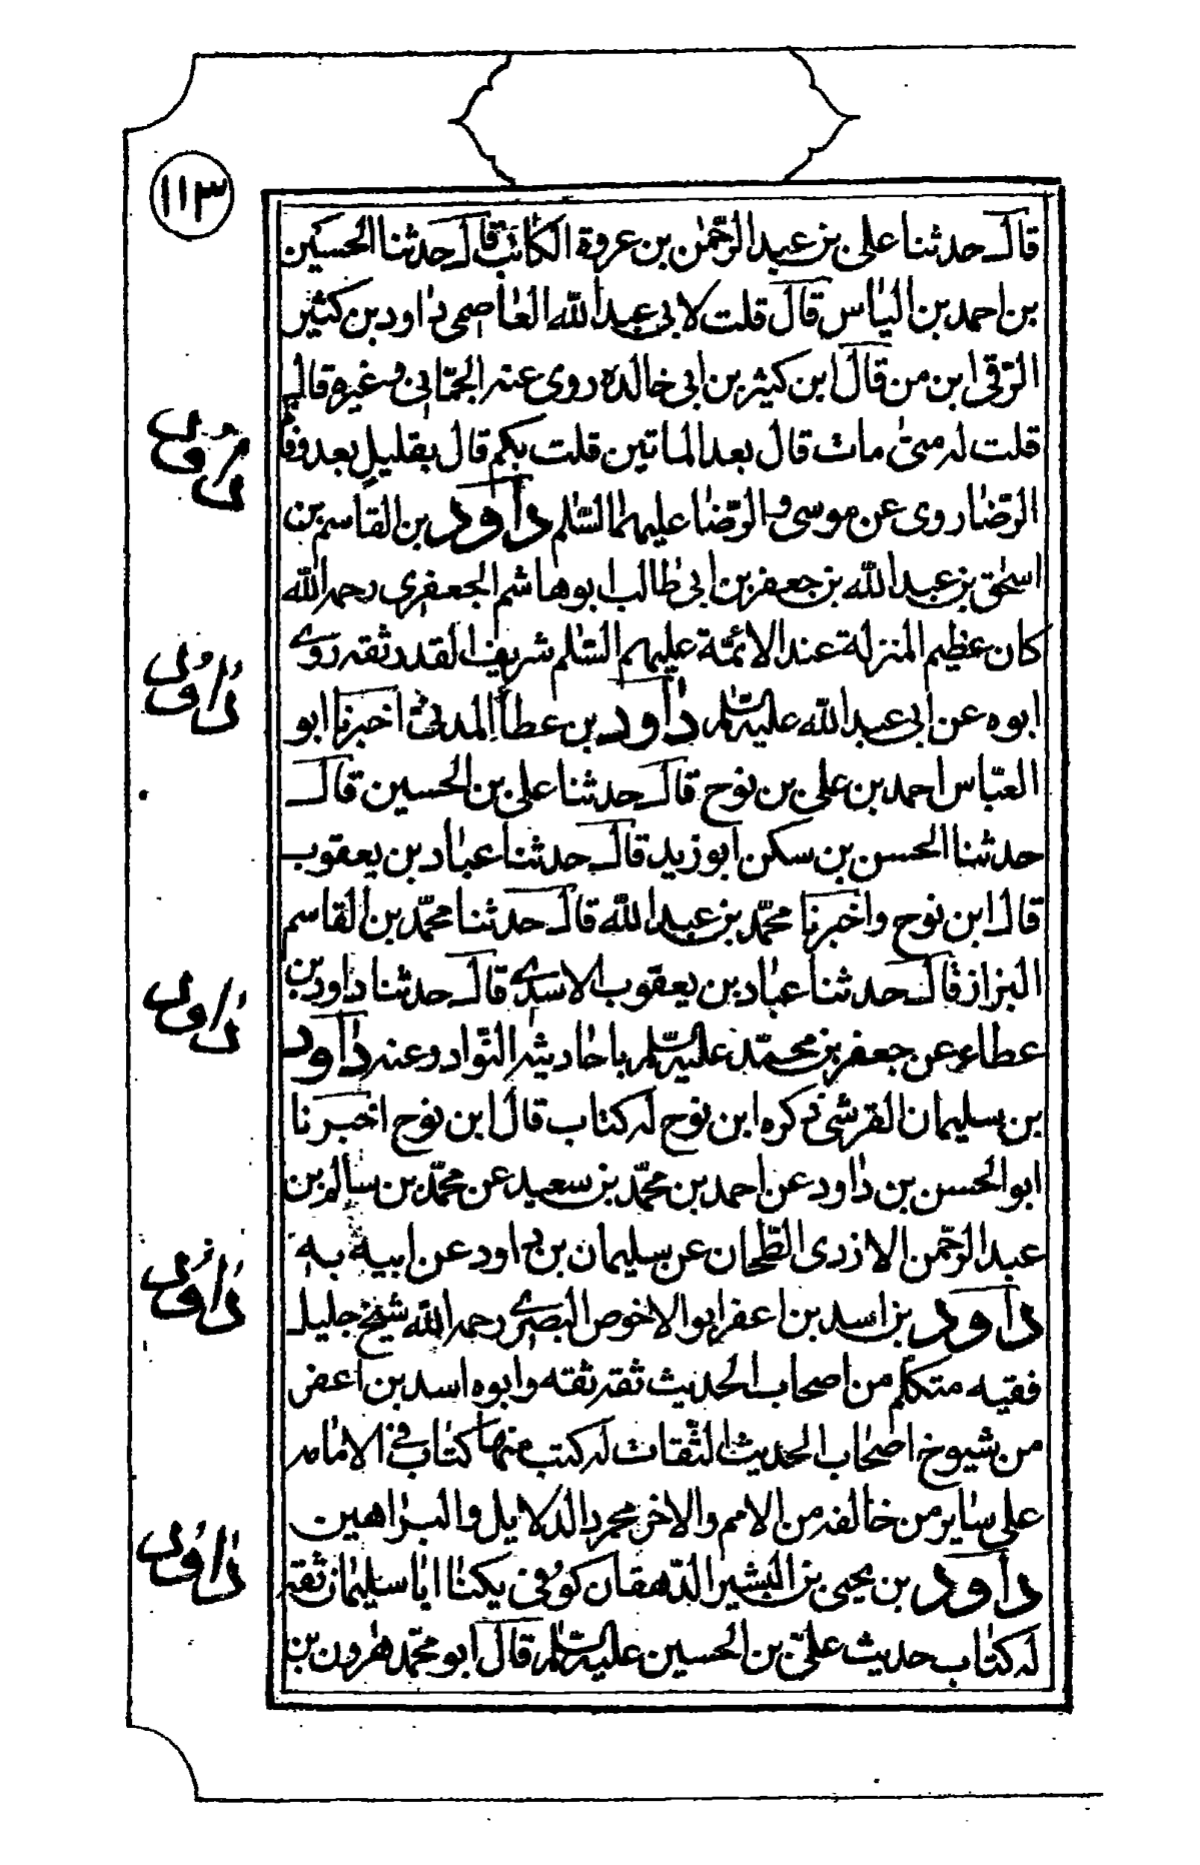 ١١٣
قال حدثنا علی بن عبد الرّحمٰن بن عروة الکاتب قال حدثنا الحسین
بن احمد بن الیاس قال قلت لابی عبد الله العاصمی داود بن کثیر
الرّقی ابن من قال ابن کثیر بن ابی خالده روی عنه الجمّانی و غیره قال
قلت له متیٰ مات قال بعد الماتین قلت بکم قال بقلیل بعد وفاة
الرّضا روی عن موسی و الرّضا علیهما السّلم داود بن القاسم بن
اسحٰق بن عبد الله بن جعفر بن ابی طالب ابو هاشم الجعفری رحمه الله
کان عظیم المنزلة عند الائمّة علیهم السّلم شریف القدر ثقه روی
ابوه عن ابی عبد الله علیه السّلم داود بن عطاء المدنی اخبرنا ابو
العبّاس احمد بن علی بن نوح قال حدثنا علی بن الحسین قال
حدثنا الحسن بن سکن ابو زید قال حدثنا عباد بن یعقوب
قال ابن نوح واخبرنا محمّد بن عبد الله قال حدثنا محمّد بن القاسم
البزاز قال حدثنا عباد بن یعقوب الاسدی قال حدثنا داود بن
عطاء عن جعفر بن محمّد علیه السّلم باحادیثه النّوادر وعنه داود
بن سلیمان القرشی ذکره ابن نوح له کتاب قال ابن نوح اخبرنا
ابو الحسن بن داود عن احمد بن محمّد بن سعید عن محمّد بن سالم بن
عبد الرّحمٰن الازدی الطّحان عن سلیمان بن داود عن ابیه به
داود بن اسد بن اعفر ابو الاخوص البصری رحمه الله شیخ جلیل
فقیه متکلّم من اصحاب الحدیث ثقه ثقه وابوه اسد بن اعفر
من شیوخ اصحاب الحدیث الثقات له کتب منها کتاب فی الامامه
علی سایر من خالفه من الامم والاخر مجرد الدلایل والبراهین
داود بن یحیی بن البشیر الدّهقان کوفی یکنا ابا سلیمان ثقه
له کتاب حدیث علیّ بن الحسین علیه السّلم قال ابو محمّد هرون بن